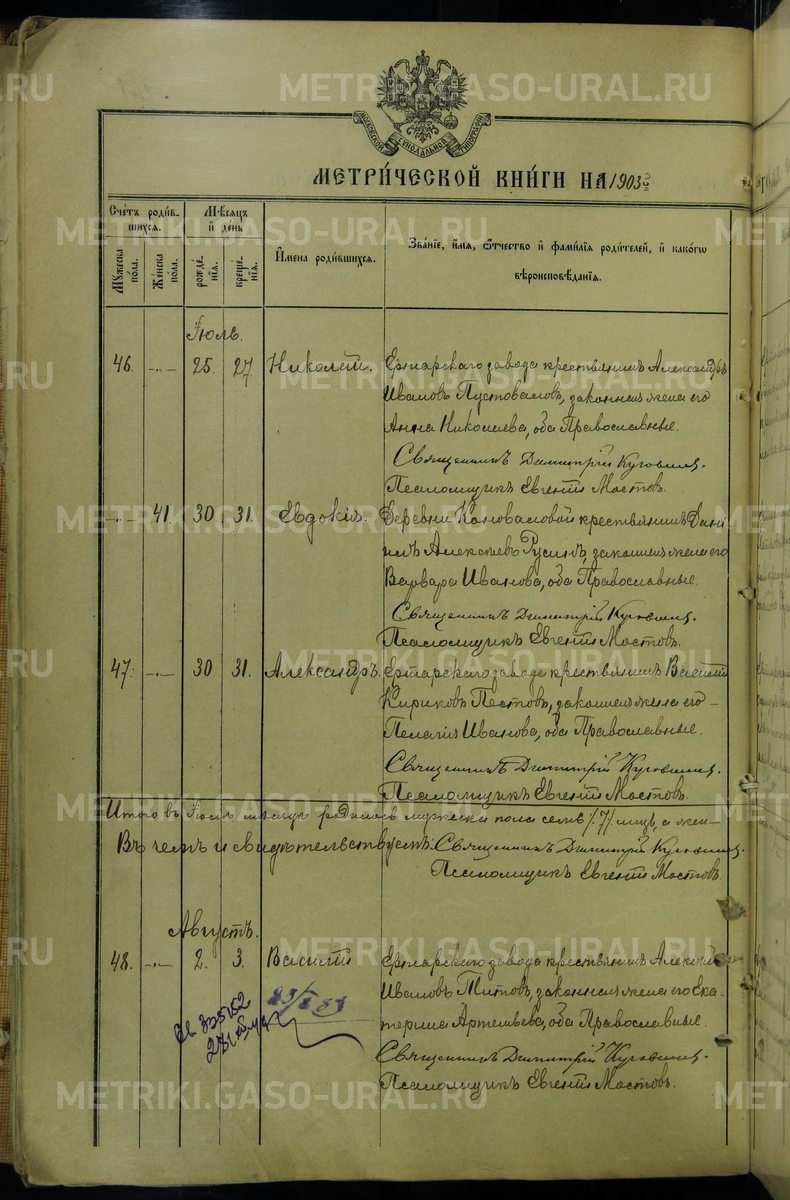 МОСКОВСКОЙ СѴНОДАЛЬНОЙ ТИПОГРАФІИ
МЕТРИ́ЧЕСКОЙ КНИ́ГИ НА 1903 г.
Сче́тъ роди́в- Мѣ́сяцъ
шихся. и҆ день
Мꙋ́жеска по́ла. Же́нска по́ла. рожде́нїя. креще́нїя. И҆мена роди́вшихся. Зва́нїе, и҆́мя, ѻ҆́тчество и҆ фами́лїя роди́телей, и҆ како́гѡ
вѣроисповѣ́данїя.
Іюль.
46. —"— 25. 27 Николай. Ертарскаго завода крестьянинъ Александръ
Ивановъ Пустоваловъ, законная жена его
Анна Николаева, оба Православные.
Священникъ Димитрій
Псаломщикъ Евгеній Мостовъ.
—"— 41. 30 31. Евдокія. Деревни Коноваловой крестьянинъ Дані-
илъ Алексѣевъ законная жена его
Варвара Иванова, оба Православные.
Священникъ Димитрій
Псаломщикъ Евгеній Мостовъ.
47. —"— 30 31. Александръ. Ертарскаго завода крестьянинъ Василій
Кириковъ Пестовъ, законная жена его
Пелагія Иванова, оба Православные.
Священникъ Димитрій
Псаломщикъ Евгеній Мостовъ.
Итого въ Іюлѣ мѣсяцѣ родилось мужеска пола семь /7/ лицъ, а жен-
Въ чемъ и свидѣтельствуемъ: Священникъ Димитрій
Псаломщикъ Евгеній Мостовъ.
Августъ.
48. —"— 2. 3. Василій Ертарскаго завода крестьянинъ Алексѣй
Ивановъ Титовъ, законная жена его Ека-
терина Артемьева, оба Православные.
Священникъ Димитрій
Псаломщикъ Евгеній Мостовъ.
METRIKI.GASO-URAL.RU